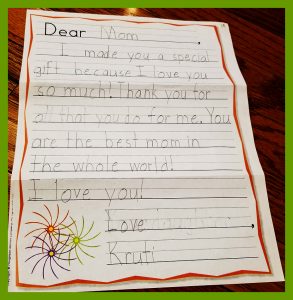 Dear Mom,
I made you a special
gift because I love you
so much! Thank you for
all that you do for me. You
are the best mom in
the whole world!
I love you!
Love
Kruti